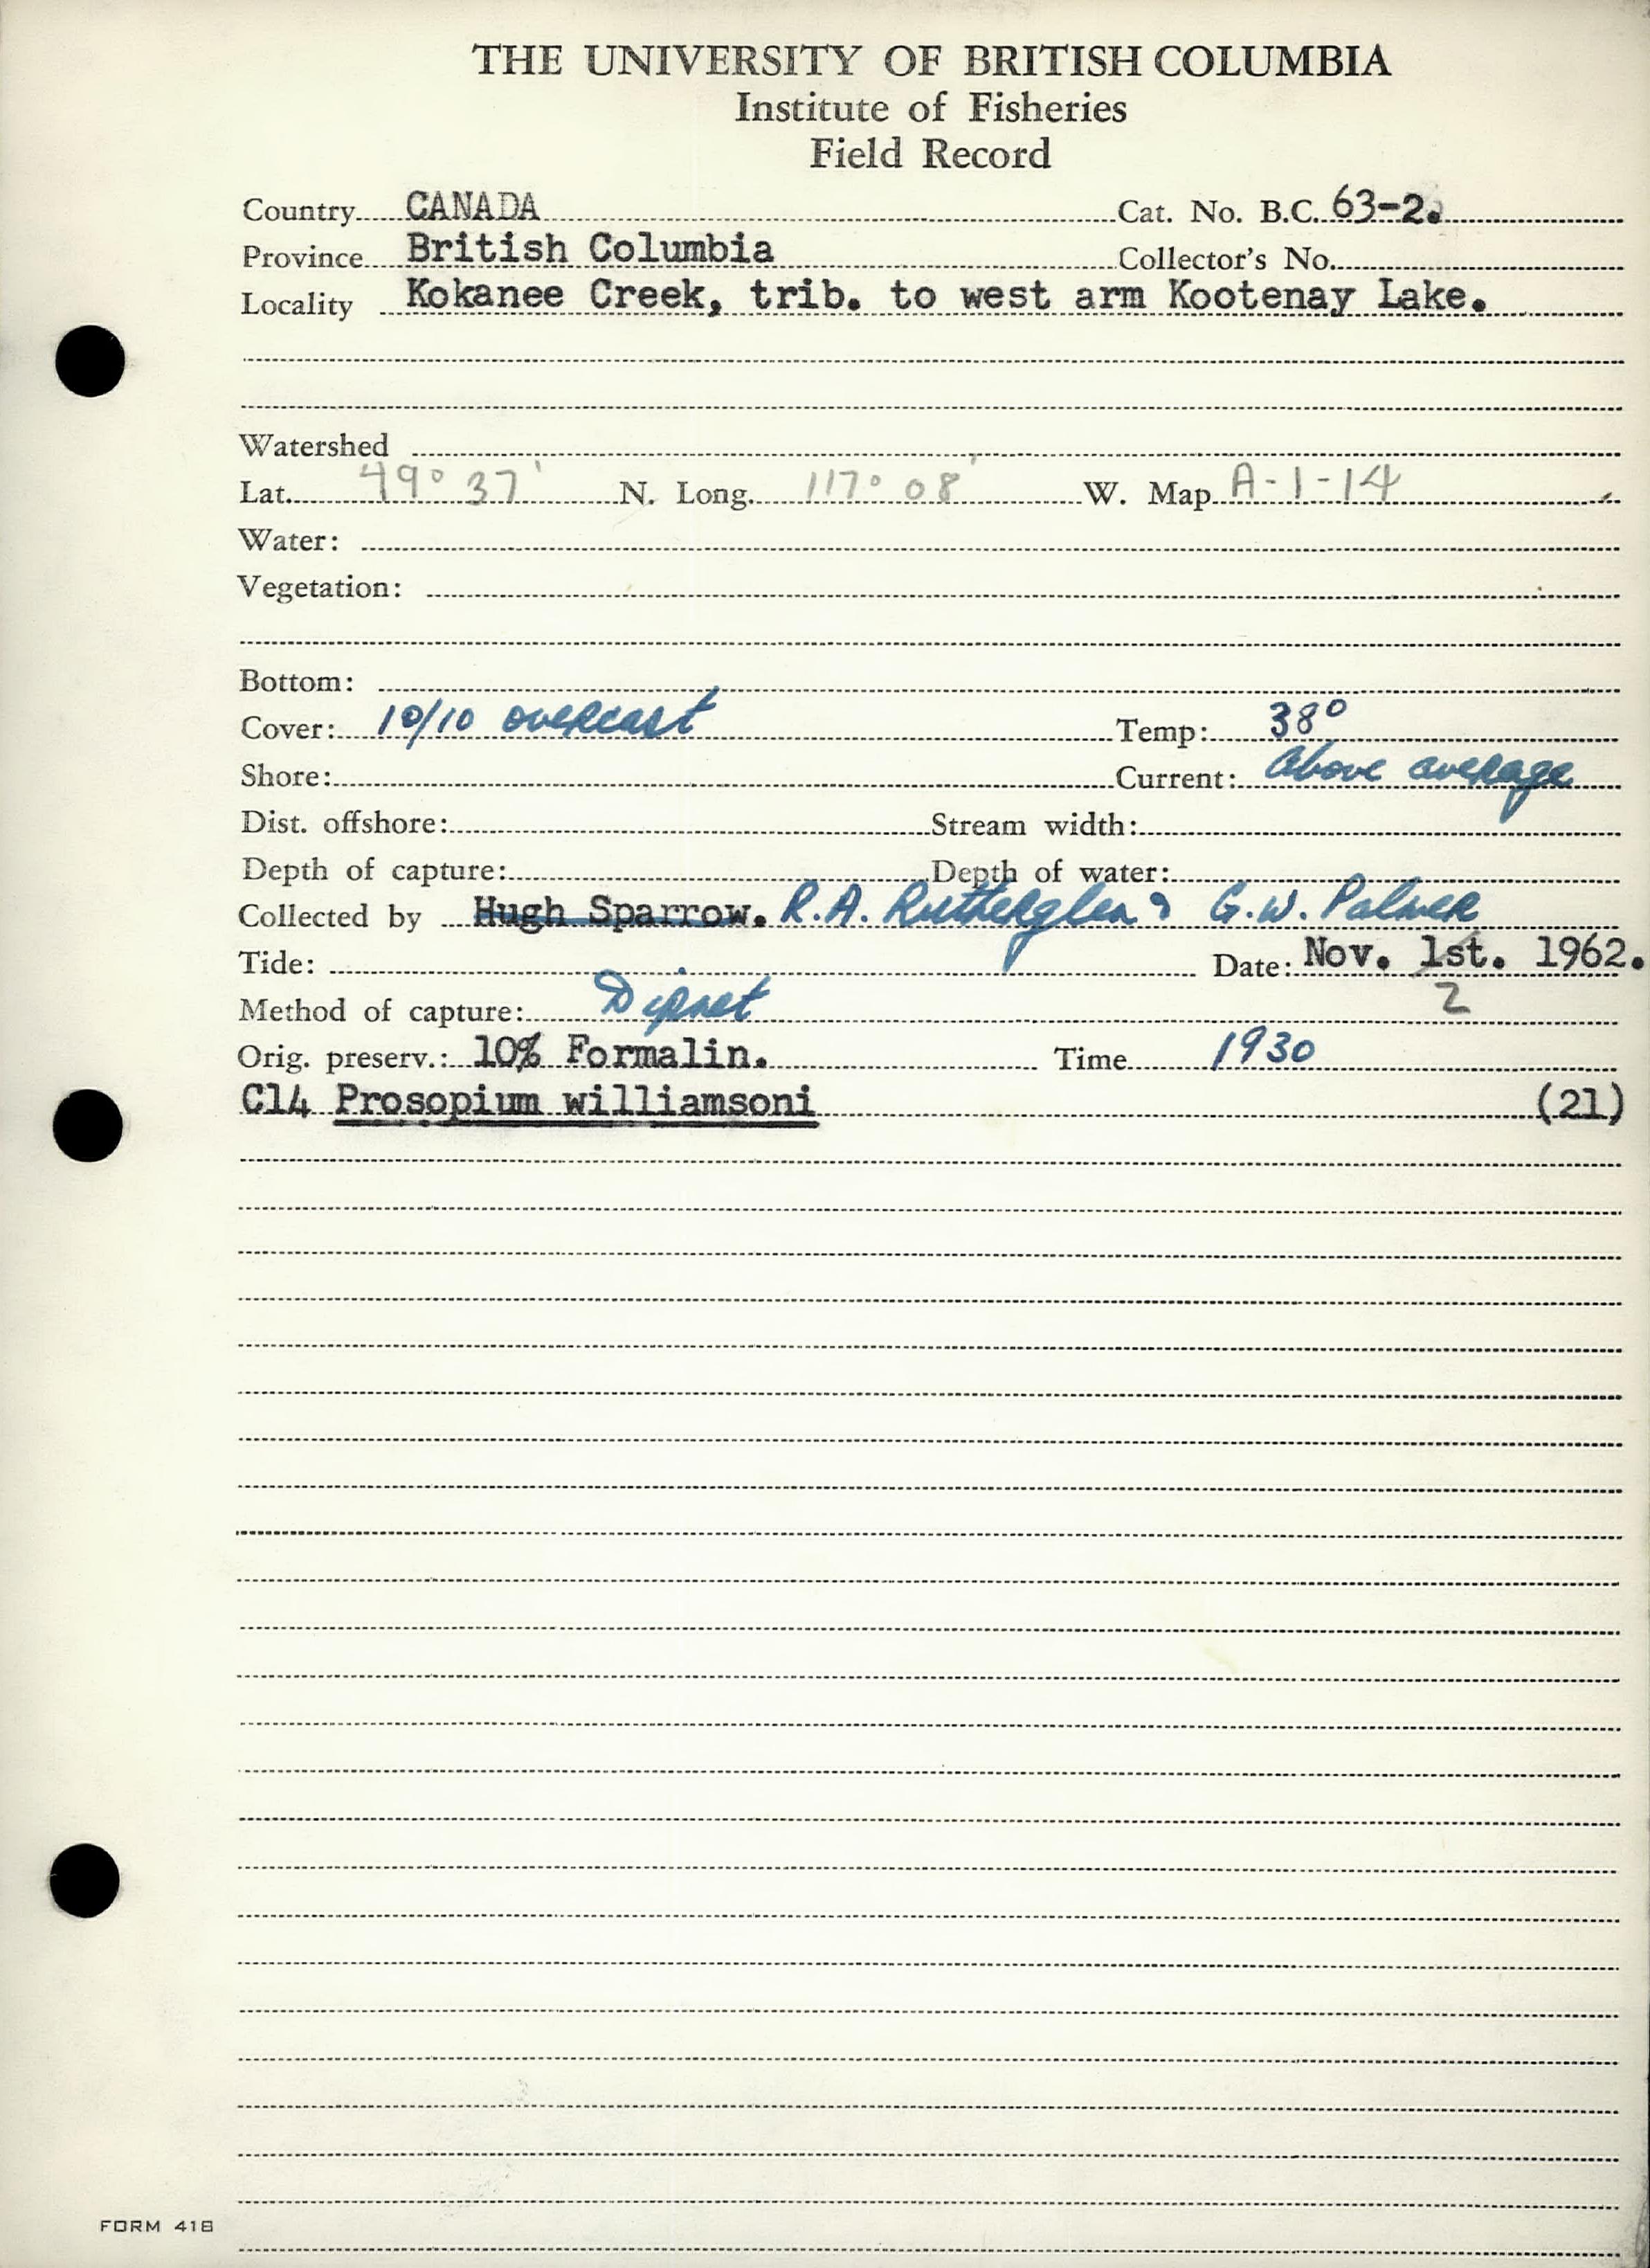 THE UNIVERSITY OF BRITISH COLUMBIA
Institute of Fisheries
Field Record
Country CANADA Cat. No. B.C. 63-2.
Province British Columbia Collector's No.
Locality Kokanee Creek, trib. to west arm Kootenay Lake.
Watershed
Lat. 49° 37' N. Long. 117° 08' W. Map A-1-14
Water:
Vegetation:
Bottom:
Cover: 10/10 overcast Temp: 38°
Shore: Current: Above average
Dist. offshore: Stream width:
Depth of capture: Depth of water:
Collected by Hugh Sparrow. R.A. Rutherglen & G.W. Palmer
Tide: Date: Nov. 1st. 1962.
2
Method of capture: Dipnet
Orig. preserv.: 10% Formalin. Time 1930
C14 Prosopium williamsoni (21)
FORM 418